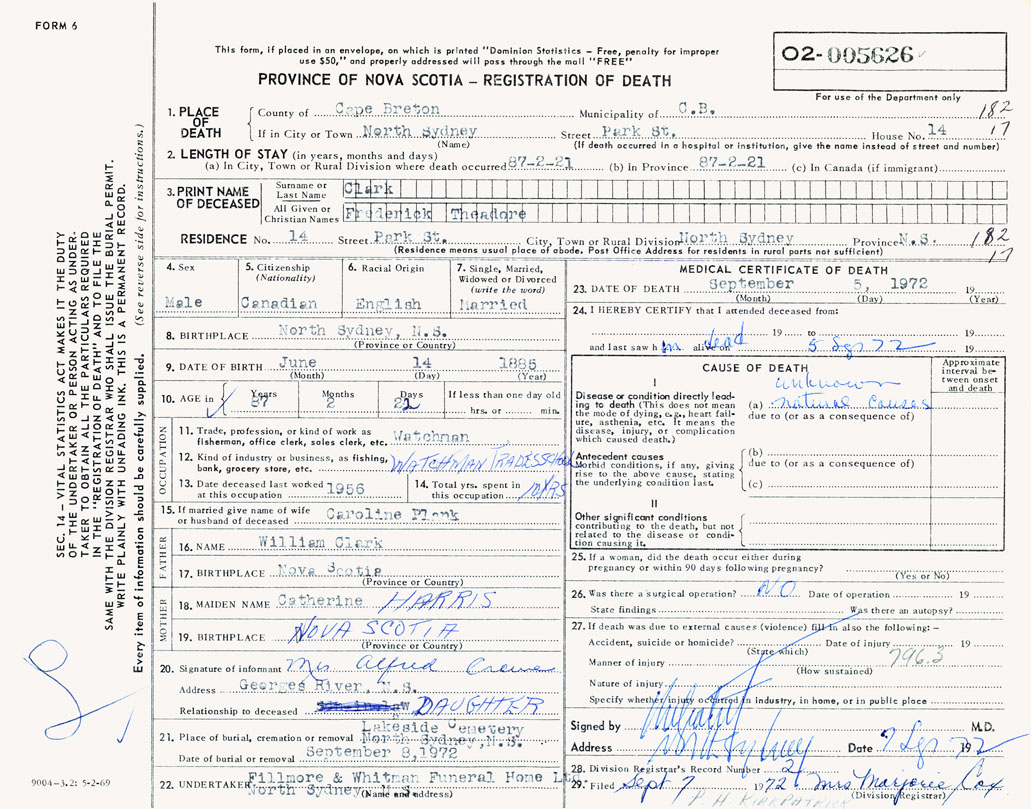 FORM 6
This form, if placed in an envelope, on which is printed "Dominion Statistics – Free, penalty for improper
use $50," and properly addressed will pass through the mail "FREE"
PROVINCE OF NOVA SCOTIA – REGISTRATION OF DEATH
02-005626
For use of the Department only
1. PLACE OF DEATH
County of Cape Breton Municipality of C.B. 182
If in City or Town North Sydney Street Park St. House No. 14 17
(Name) (If death occurred in a hospital or institution, give the name instead of street and number)
2. LENGTH OF STAY (in years, months and days)
(a) In City, Town or Rural Division where death occurred 87-2-21 (b) In Province 87-2-21 (c) In Canada (if immigrant)
3. PRINT NAME OF DECEASED
Surname or Last Name Clark
All Given or Christian Names Frederick Theadore
RESIDENCE No. 14 Street Park St. City, Town or Rural Division North Sydney Province N.S. 182
(Residence means usual place of abode. Post Office Address for residents in rural parts not sufficient) 17
4. Sex
Male
5. Citizenship
(Nationality)
Canadian
6. Racial Origin
English
7. Single, Married,
Widowed or Divorced
(write the word)
Married
8. BIRTHPLACE North Sydney, N.S.
(Province or Country)
9. DATE OF BIRTH June 14 1885
(Month) (Day) (Year)
10. AGE in Years Months Days If less than one day old
87 2 22 hrs. or min.
OCCUPATION
11. Trade, profession, or kind of work as
fisherman, office clerk, sales clerk, etc. Watchman
12. Kind of industry or business, as fishing,
bank, grocery store, etc. WATCHMAN TRADESSCHOOL
13. Date deceased last worked
at this occupation 1956
14. Total yrs. spent in
this occupation 10 YRS
15. If married give name of wife
or husband of deceased Caroline Plank
FATHER
16. NAME William Clark
17. BIRTHPLACE Nova Scotia
(Province or Country)
MOTHER
18. MAIDEN NAME Catherine HARRIS
19. BIRTHPLACE NOVA SCOTIA
(Province or Country)
20. Signature of informant Mrs Alfred
Address Georges River, N.S.
Relationship to deceased DAUGHTER
21. Place of burial, cremation or removal Lakeside Cemetery
North Sydney, N.S.
Date of burial or removal September 8, 1972
22. UNDERTAKER Fillmore & Whitman Funeral Home Ltd
North Sydney, N.S.
(Name and address)
MEDICAL CERTIFICATE OF DEATH
23. DATE OF DEATH September 5, 1972 19
(Month) (Day) (Year)
24. I HEREBY CERTIFY that I attended deceased from:
19 to 19
and last saw him alive on dead 5 Sep 72 19
CAUSE OF DEATH
Approximate interval between onset and death
I
Disease or condition directly leading to death (This does not mean the mode of dying, e.g., heart failure, asthenia, etc. It means the disease, injury, or complication which caused death.)
unknown
(a) natural causes
due to (or as a consequence of)
Antecedent causes
Morbid conditions, if any, giving rise to the above cause, stating the underlying condition last.
(b)
due to (or as a consequence of)
(c)
II
Other significant conditions
contributing to the death, but not related to the disease or condition causing it.
25. If a woman, did the death occur either during
pregnancy or within 90 days following pregnancy?
(Yes or No)
26. Was there a surgical operation? NO Date of operation 19
State findings Was there an autopsy?
27. If death was due to external causes (violence) fill in also the following: –
Accident, suicide or homicide? Date of injury 19
(State which) 796.3
Manner of injury
(How sustained)
Nature of injury
Specify whether injury occurred in industry, in home, or in public place
Signed by M.D.
Address North Sydney Date 7 Sep 1972
28. Division Registrar's Record Number 2
29. Filed Sept 7 1972 Mrs Marjorie Cox
(Division Registrar)
P. H. KIRKPATRICK
SEC. 14 – VITAL STATISTICS ACT MAKES IT THE DUTY
OF THE UNDERTAKER OR PERSON ACTING AS UNDER-
TAKER TO OBTAIN ALL THE PARTICULARS REQUIRED
IN THE "REGISTRATION OF DEATH" AND TO FILE THE
SAME WITH THE DIVISION REGISTRAR WHO SHALL ISSUE THE BURIAL PERMIT.
WRITE PLAINLY WITH UNFADING INK. THIS IS A PERMANENT RECORD.
Every item of information should be carefully supplied. (See reverse side for instructions.)
9004–3.2: 5-2-69